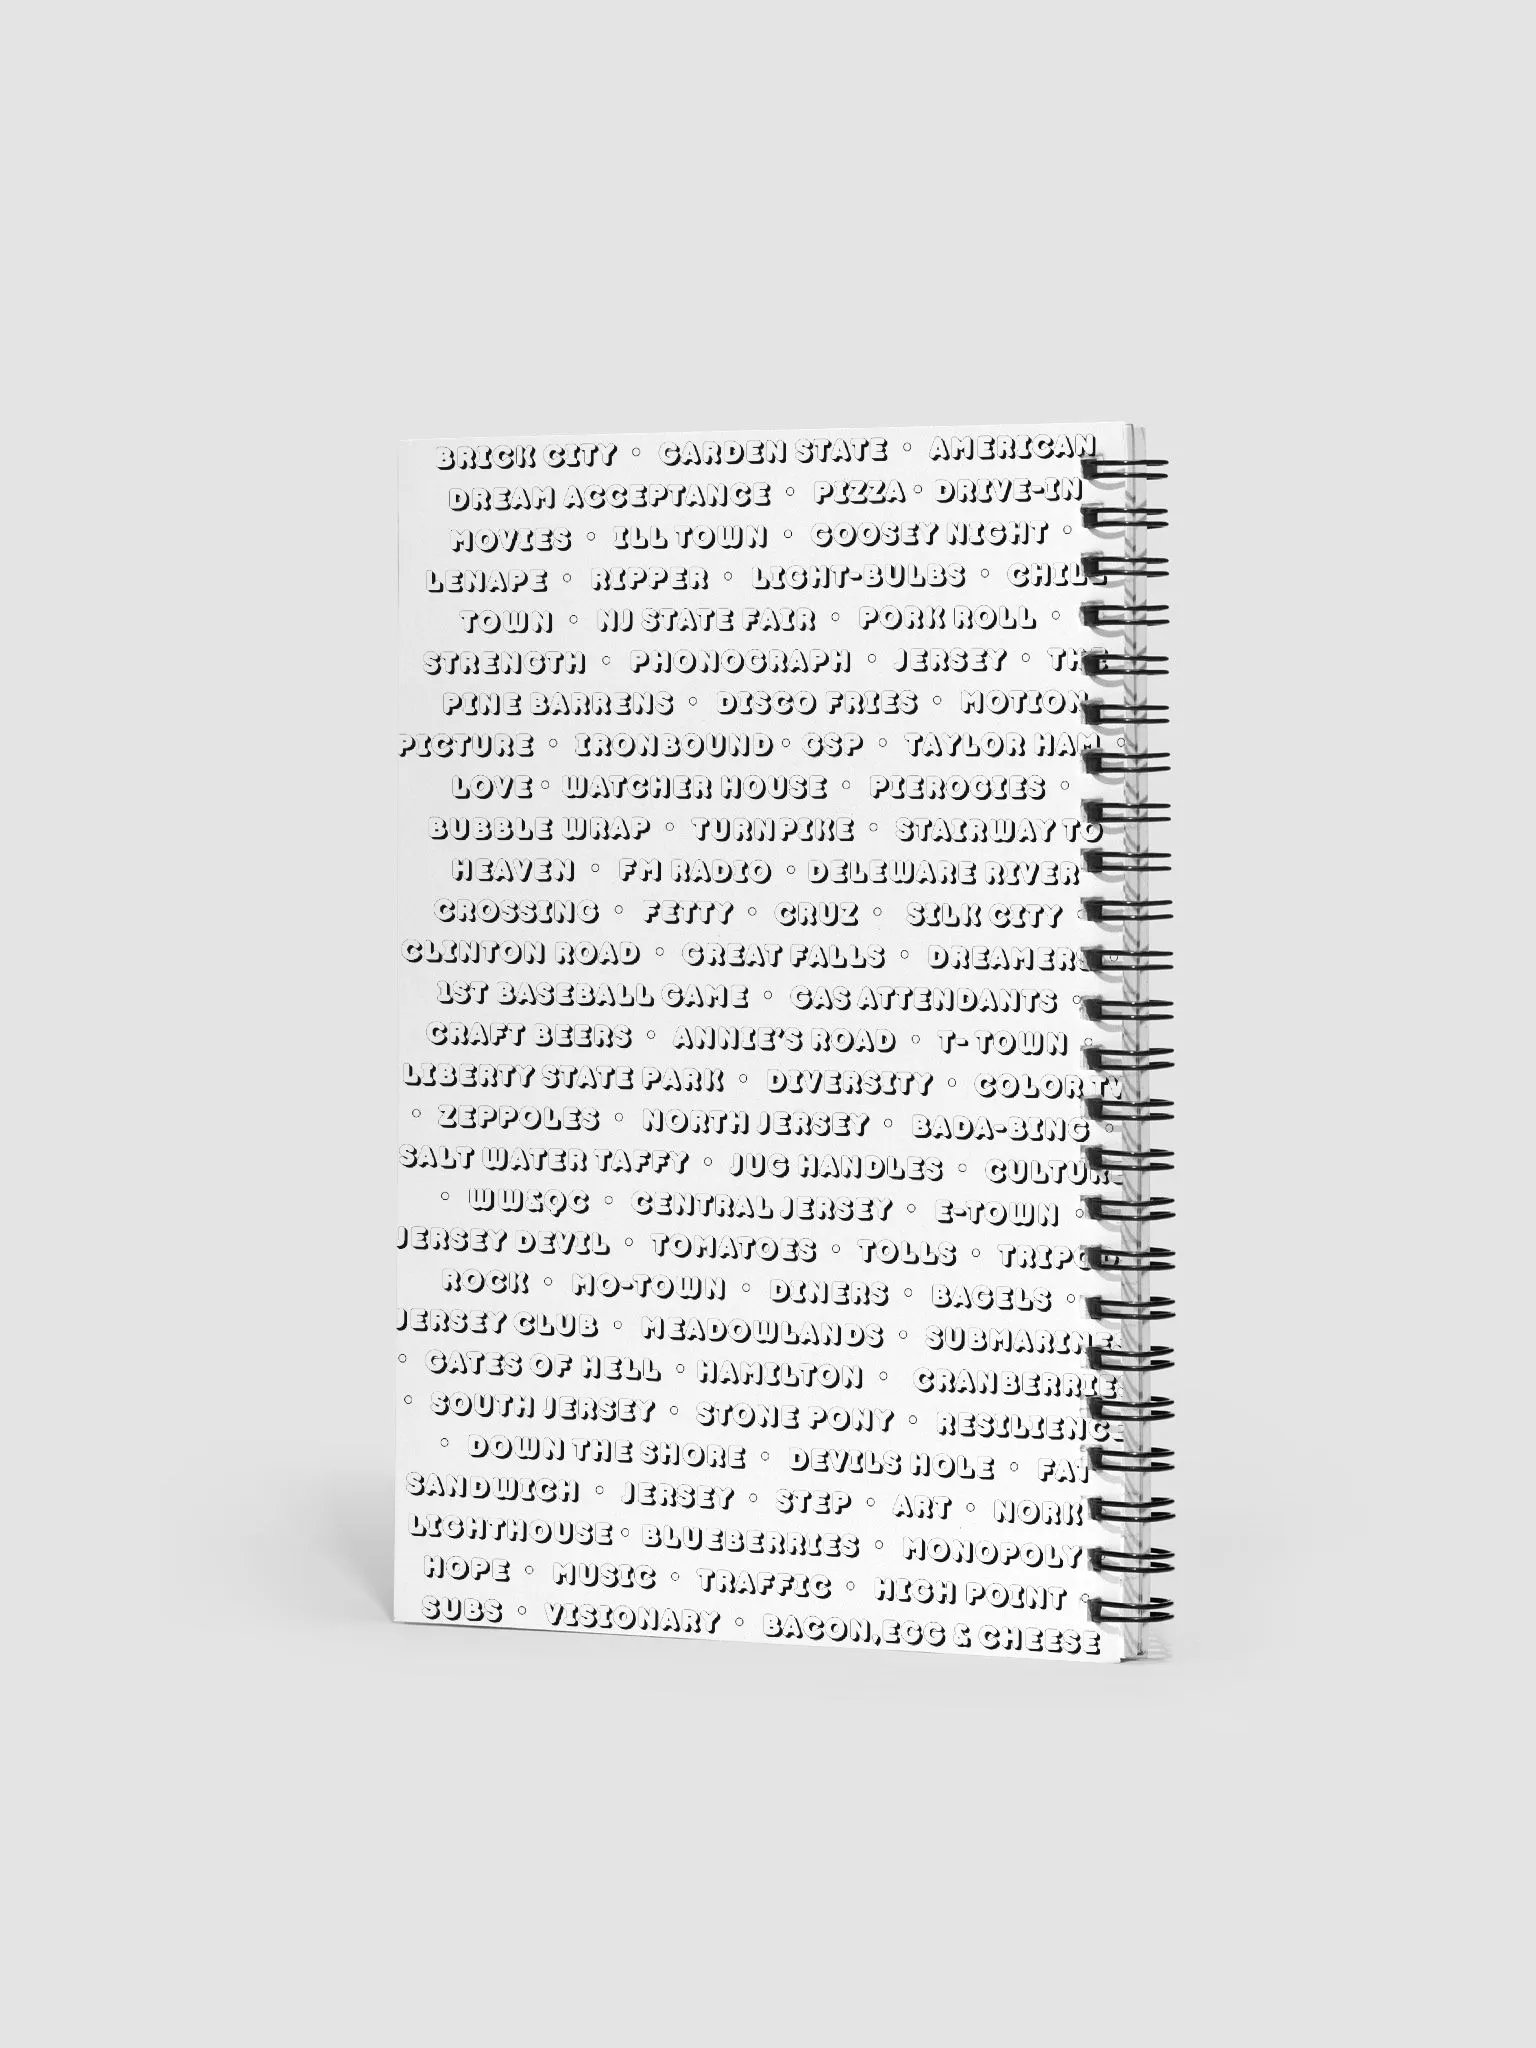 BRICK CITY ◦ GARDEN STATE ◦ AMERICAN
DREAM ACCEPTANCE ◦ PIZZA ◦ DRIVE-IN
MOVIES ◦ ILL TOWN ◦ GOOSEY NIGHT ◦
LENAPE ◦ RIPPER ◦ LIGHT-BULBS ◦ CHILL
TOWN ◦ NJ STATE FAIR ◦ PORK ROLL ◦
STRENGTH ◦ PHONOGRAPH ◦ JERSEY ◦ THE
PINE BARRENS ◦ DISCO FRIES ◦ MOTION
PICTURE ◦ IRONBOUND ◦ GSP ◦ TAYLOR HAM ◦
LOVE ◦ WATCHER HOUSE ◦ PIEROGIES ◦
BUBBLE WRAP ◦ TURNPIKE ◦ STAIRWAY TO
HEAVEN ◦ FM RADIO ◦ DELEWARE RIVER
CROSSING ◦ FETTY ◦ CRUZ ◦ SILK CITY ◦
CLINTON ROAD ◦ GREAT FALLS ◦ DREAMERS ◦
1ST BASEBALL GAME ◦ GAS ATTENDANTS ◦
CRAFT BEERS ◦ ANNIE'S ROAD ◦ T- TOWN ◦
LIBERTY STATE PARK ◦ DIVERSITY ◦ COLOR TV
◦ ZEPPOLES ◦ NORTH JERSEY ◦ BADA-BING ◦
SALT WATER TAFFY ◦ JUG HANDLES ◦ CULTURE
◦ WW&QC ◦ CENTRAL JERSEY ◦ E-TOWN ◦
JERSEY DEVIL ◦ TOMATOES ◦ TOLLS ◦ TRIPOD
ROCK ◦ MO-TOWN ◦ DINERS ◦ BAGELS ◦
JERSEY CLUB ◦ MEADOWLANDS ◦ SUBMARINES
◦ GATES OF HELL ◦ HAMILTON ◦ CRANBERRIES
◦ SOUTH JERSEY ◦ STONE PONY ◦ RESILIENCE
◦ DOWN THE SHORE ◦ DEVILS HOLE ◦ FAT
SANDWICH ◦ JERSEY ◦ STEP ◦ ART ◦ NORK
LIGHTHOUSE ◦ BLUEBERRIES ◦ MONOPOLY
HOPE ◦ MUSIC ◦ TRAFFIC ◦ HIGH POINT ◦
SUBS ◦ VISIONARY ◦ BACON,EGG & CHEESE